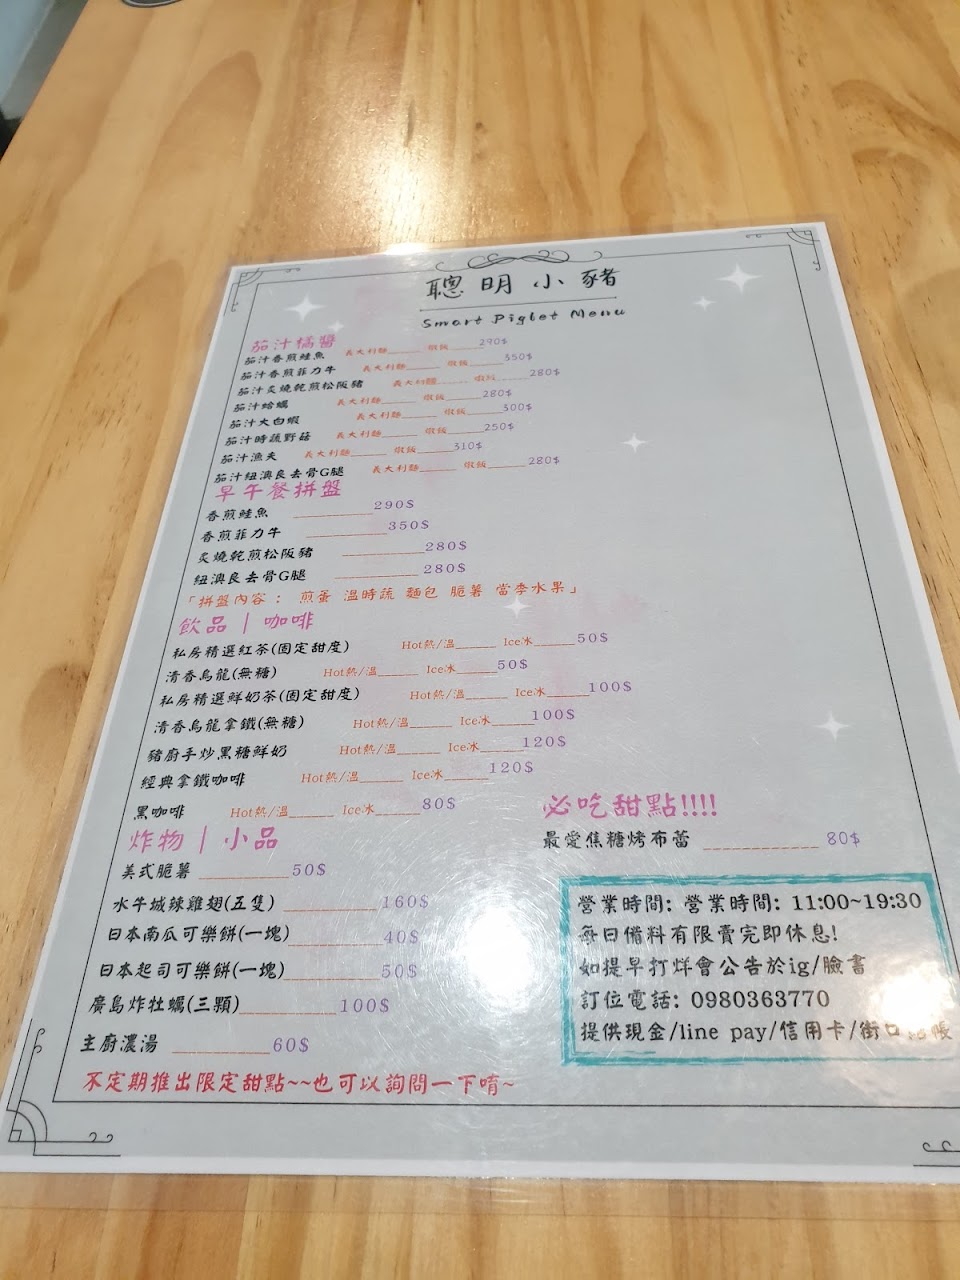 聰明小豬
Smart Piglet Menu
茄汁橘醬
茄汁香煎鮭魚 義大利麵______ 燉飯______290$
茄汁香煎菲力牛 義大利麵______ 燉飯______350$
茄汁炙燒乾煎松阪豬 義大利麵______ 燉飯______280$
茄汁蛤蠣 義大利麵______ 燉飯______280$
茄汁大白蝦 義大利麵______ 燉飯______300$
茄汁時蔬野菇 義大利麵______ 燉飯______250$
茄汁漁夫 義大利麵______ 燉飯______310$
茄汁紐澳良去骨G腿 義大利麵______ 燉飯______280$
早午餐拼盤
香煎鮭魚 __________290$
香煎菲力牛 __________350$
炙燒乾煎松阪豬 __________280$
紐澳良去骨G腿 __________280$
「拼盤內容： 煎蛋 溫時蔬 麵包 脆薯 當季水果」
飲品｜咖啡
私房精選紅茶(固定甜度) Hot熱/溫______ Ice冰______50$
清香烏龍(無糖) Hot熱/溫______ Ice冰______50$
私房精選鮮奶茶(固定甜度) Hot熱/溫______ Ice冰______100$
清香烏龍拿鐵(無糖) Hot熱/溫______ Ice冰______100$
豬廚手炒黑糖鮮奶 Hot熱/溫______ Ice冰______120$
經典拿鐵咖啡 Hot熱/溫______ Ice冰______120$
黑咖啡 Hot熱/溫______ Ice冰______80$
炸物｜小品
美式脆薯 __________50$
水牛城辣雞翅(五隻) __________160$
日本南瓜可樂餅(一塊)__________40$
日本起司可樂餅(一塊)__________50$
廣島炸牡蠣(三顆)__________100$
主廚濃湯 __________60$
不定期推出限定甜點~~也可以詢問一下唷~
必吃甜點!!!!
最愛焦糖烤布蕾 ____________ 80$
營業時間: 營業時間: 11:00~19:30
每日備料有限賣完即休息!
如提早打烊會公告於ig/臉書
訂位電話: 0980363770
提供現金/line pay/信用卡/街口結帳